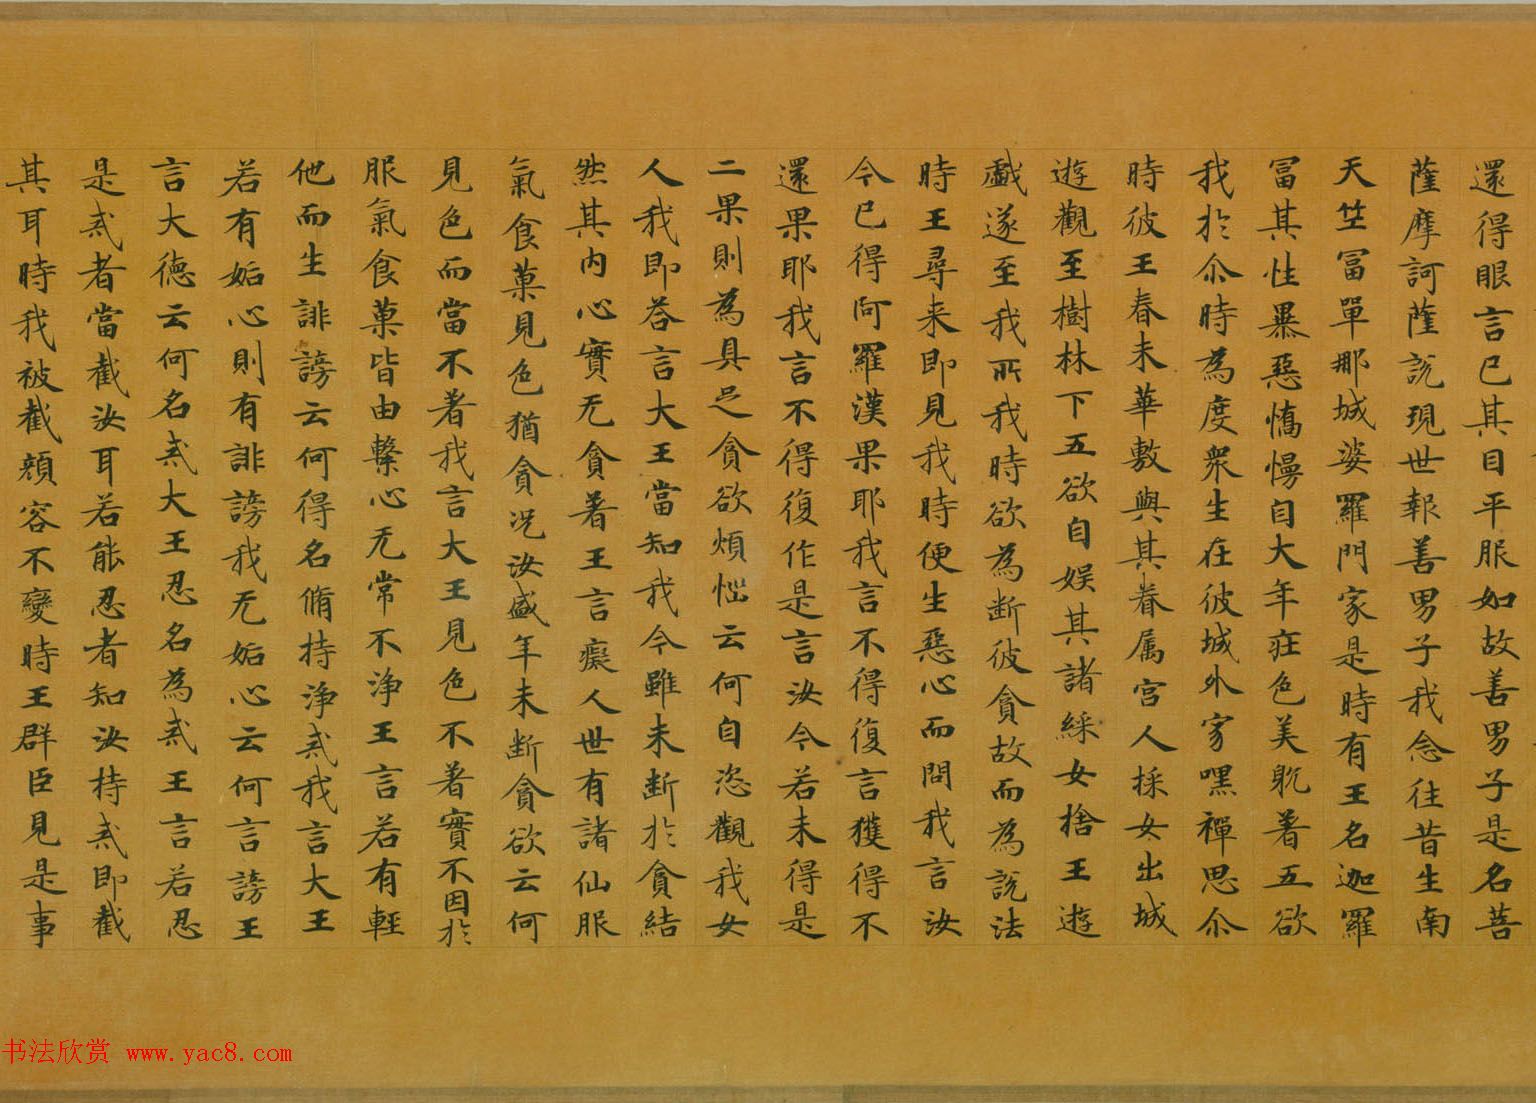 還得眼言已其目平服如故善男子是名菩
薩摩訶薩說現世報善男子我念往昔生南
天竺冨單那城婆羅門家是時有王名迦羅
冨其性暴惡憍慢自大年壮色美躭著五欲
我於尒時為度衆生在彼城外宴嘿禪思尒
時彼王春末華敷與其眷属宫人採女出城
遊觀至樹林下五欲自娱其諸綵女捨王遊
戲遂至我所我時欲為断彼貪故而為說法
時王尋来即見我時便生惡心而問我言汝
今已得阿羅漢果耶我言不得復言獲得不
還果耶我言不得復作是言汝今若未得是
二果則為具足貪欲煩惱云何自恣觀我女
人我即荅言大王當知我今雖未断於貪結
然其内心實无貪著王言癡人世有諸仙服
氣食菓見色猶貪况汝盛年未断貪欲云何
見色而當不著我言大王見色不著實不因於
服氣食菓皆由繫心无常不淨王言若有輕
他而生誹謗云何得名脩持淨戒我言大王
若有妬心則有誹謗我无妬心云何言謗王
言大德云何名戒大王忍名為戒王言若忍
是戒者當截汝耳若能忍者知汝持戒即截
其耳時我被截顔容不變時王群臣見是事
书法欣赏 www.yac8.com